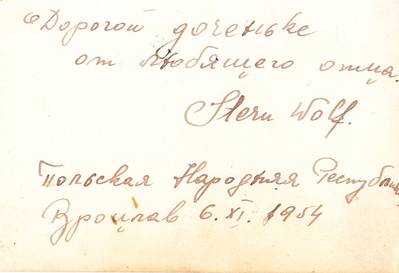 Дорогой доченьке
от любящего отца.
Stern Wolf.
Польская Народная Республика
Вроцлав 6. XI. 1954